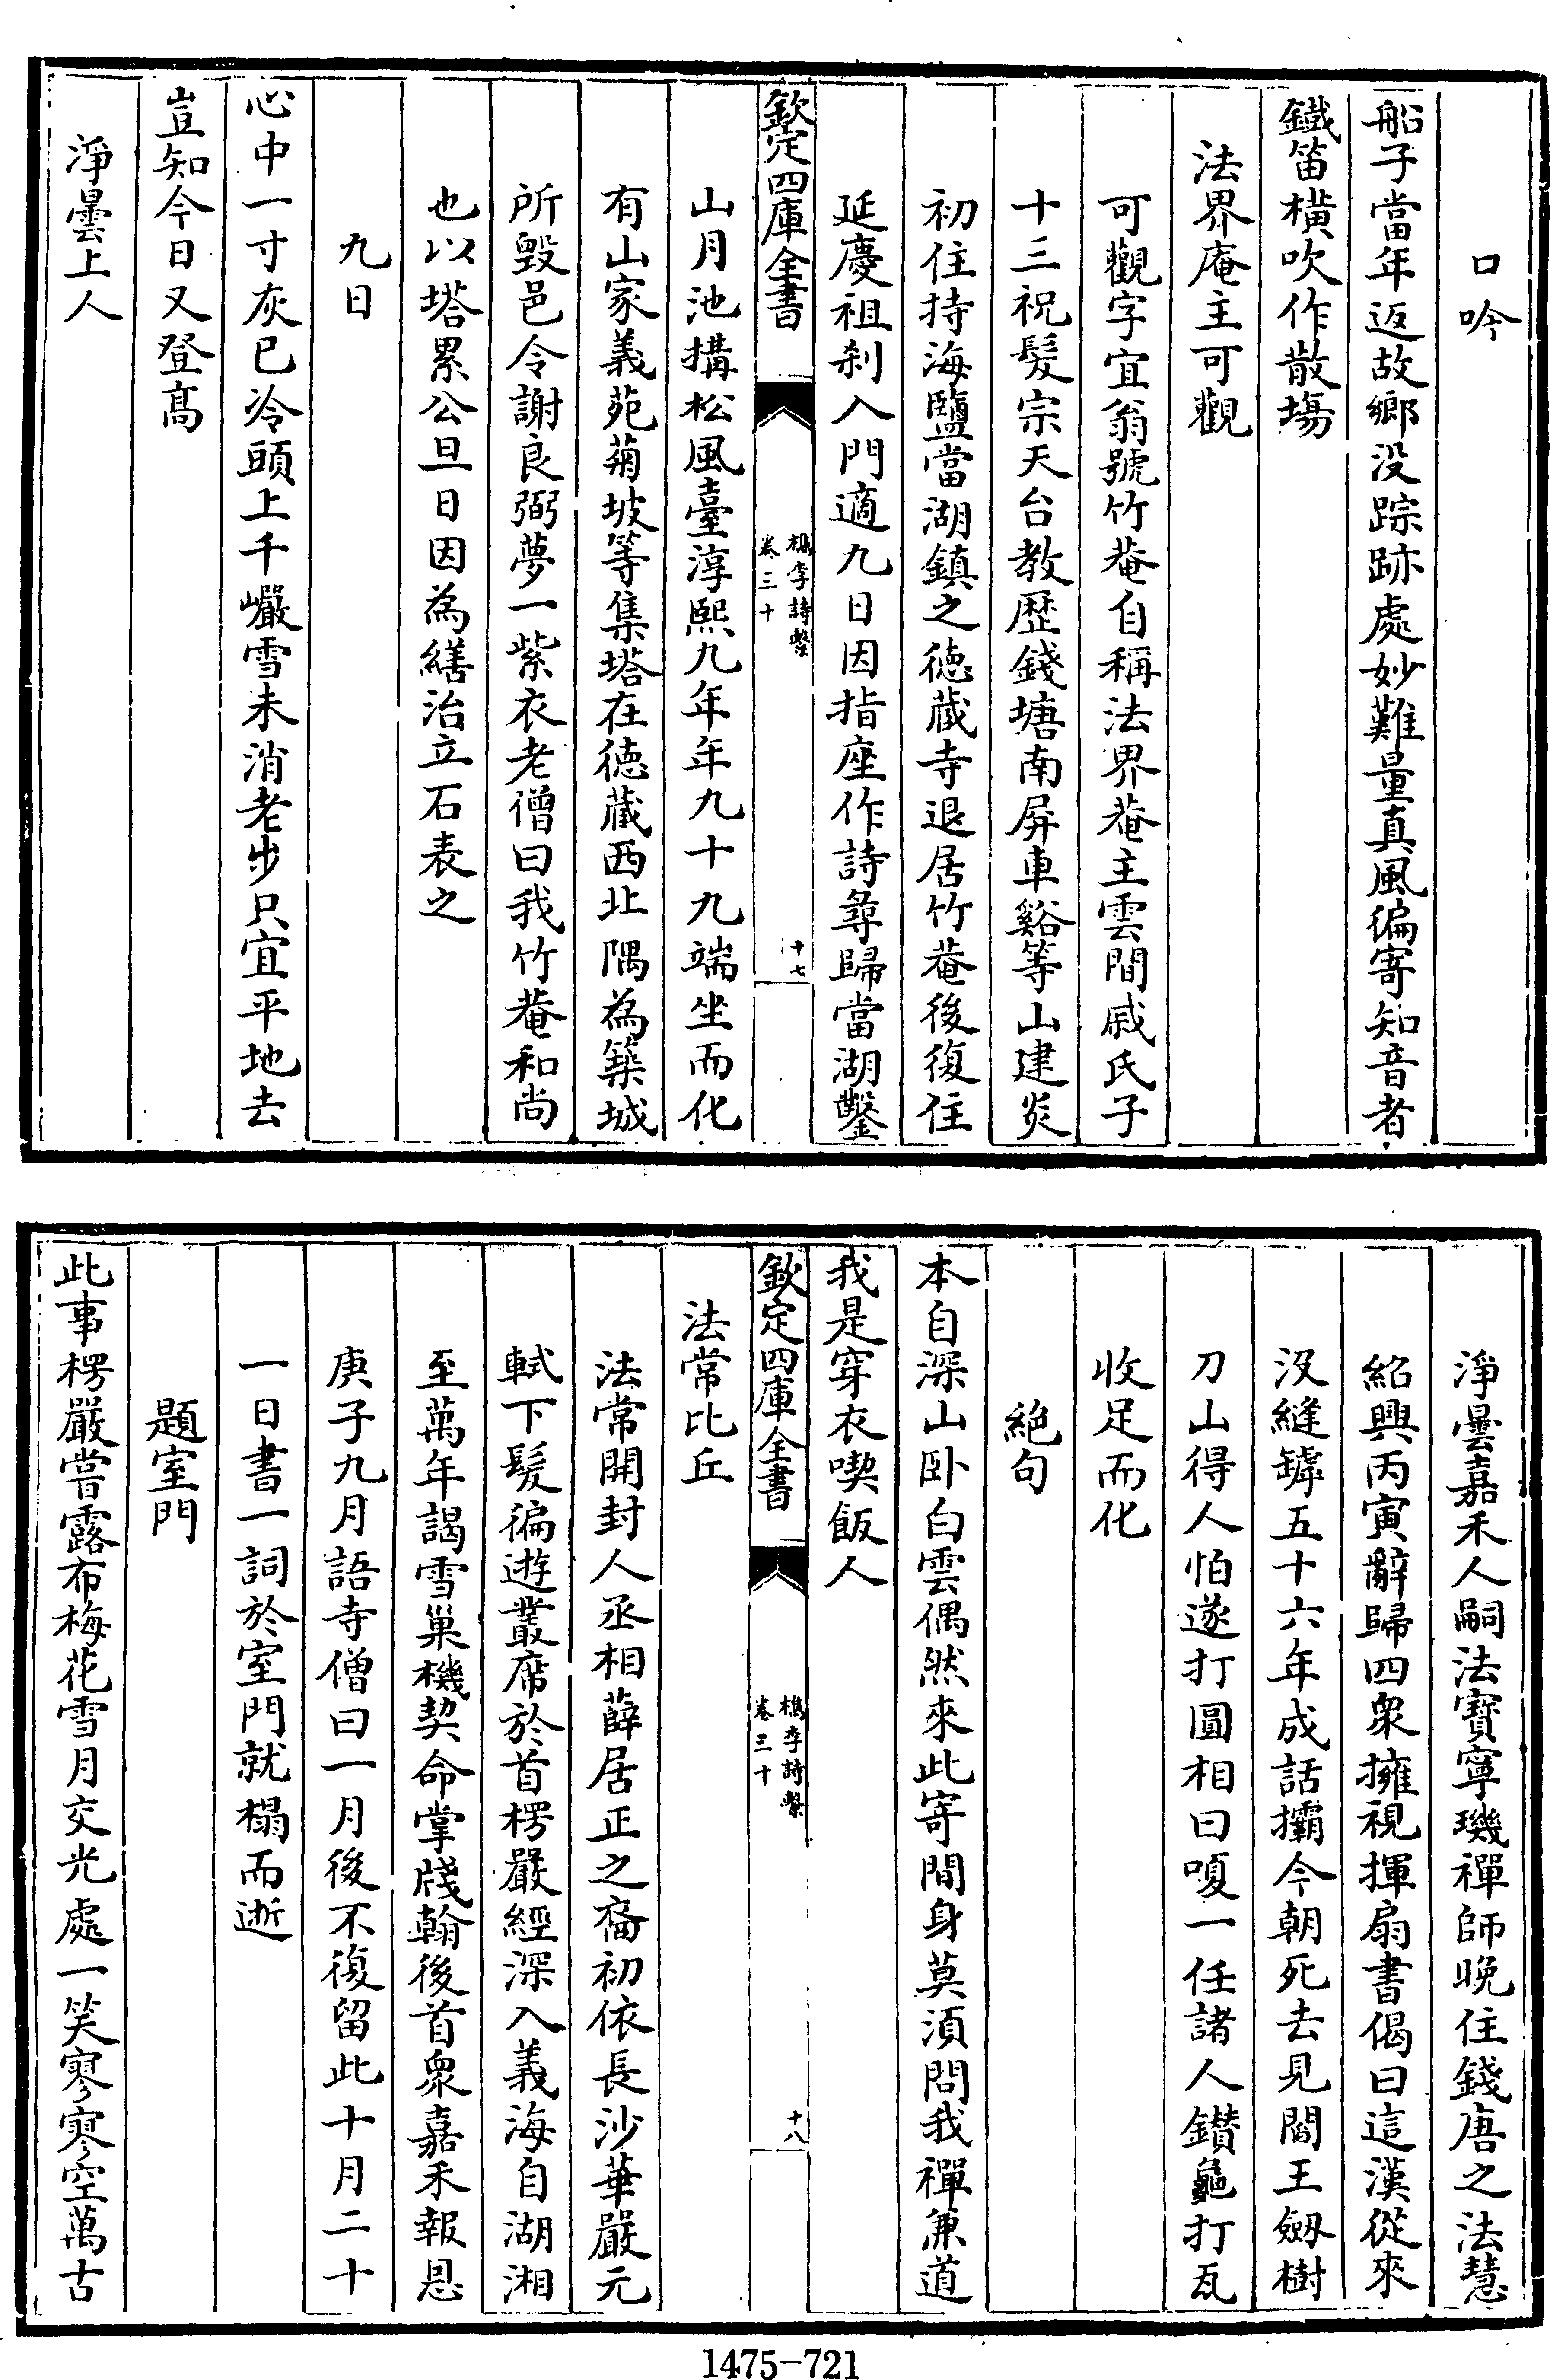 口吟
船子當年返故鄉没踪跡處妙難量真風徧寄知音者
鐵笛橫吹作散塲
法界庵主可觀
可觀字宜翁號竹菴自稱法界菴主雲間戚氏子
十三祝髪宗天台教歴錢塘南屏車谿等山建炎
初住持海鹽當湖鎮之徳藏寺退居竹菴後復住
延慶祖刹入門適九日因指座作詩尋歸當湖鑿
欽定四庫全書
檇李詩繫
卷三十
十七
山月池搆松風臺淳熙九年年九十九端坐而化
有山家義苑菊坡等集塔在徳藏西北隅為築城
所毀邑令謝良弼夢一紫衣老僧曰我竹菴和尚
也以塔累公旦日因為繕治立石表之
九日
心中一寸灰已冷頭上千巖雪未消老步只宜平地去
豈知今日又登髙
淨曇上人
淨曇嘉禾人嗣法寳寧璣禪師晚住錢唐之法慧
紹興丙寅辭歸四衆擁視揮扇書偈曰這漢從來
没縫罅五十六年成話欛今朝死去見閻王劒樹
刀山得人怕遂打圓相曰嗄一任諸人鑽龜打瓦
收足而化
絶句
本自深山卧白雲偶然來此寄閒身莫須問我禪兼道
我是穿衣喫飯人
欽定四庫全書
檇李詩繫
卷三十
十八
法常比丘
法常開封人丞相薛居正之裔初依長沙華嚴元
軾下髮徧遊叢席於首楞嚴經深入義海自湖湘
至萬年謁雪巢機契命掌牋翰後首衆嘉禾報恩
庚子九月語寺僧曰一月後不復留此十月二十
一日書一詞於室門就榻而逝
題室門
此事楞嚴嘗露布梅花雪月交光處一笑寥寥空萬古
1475-721